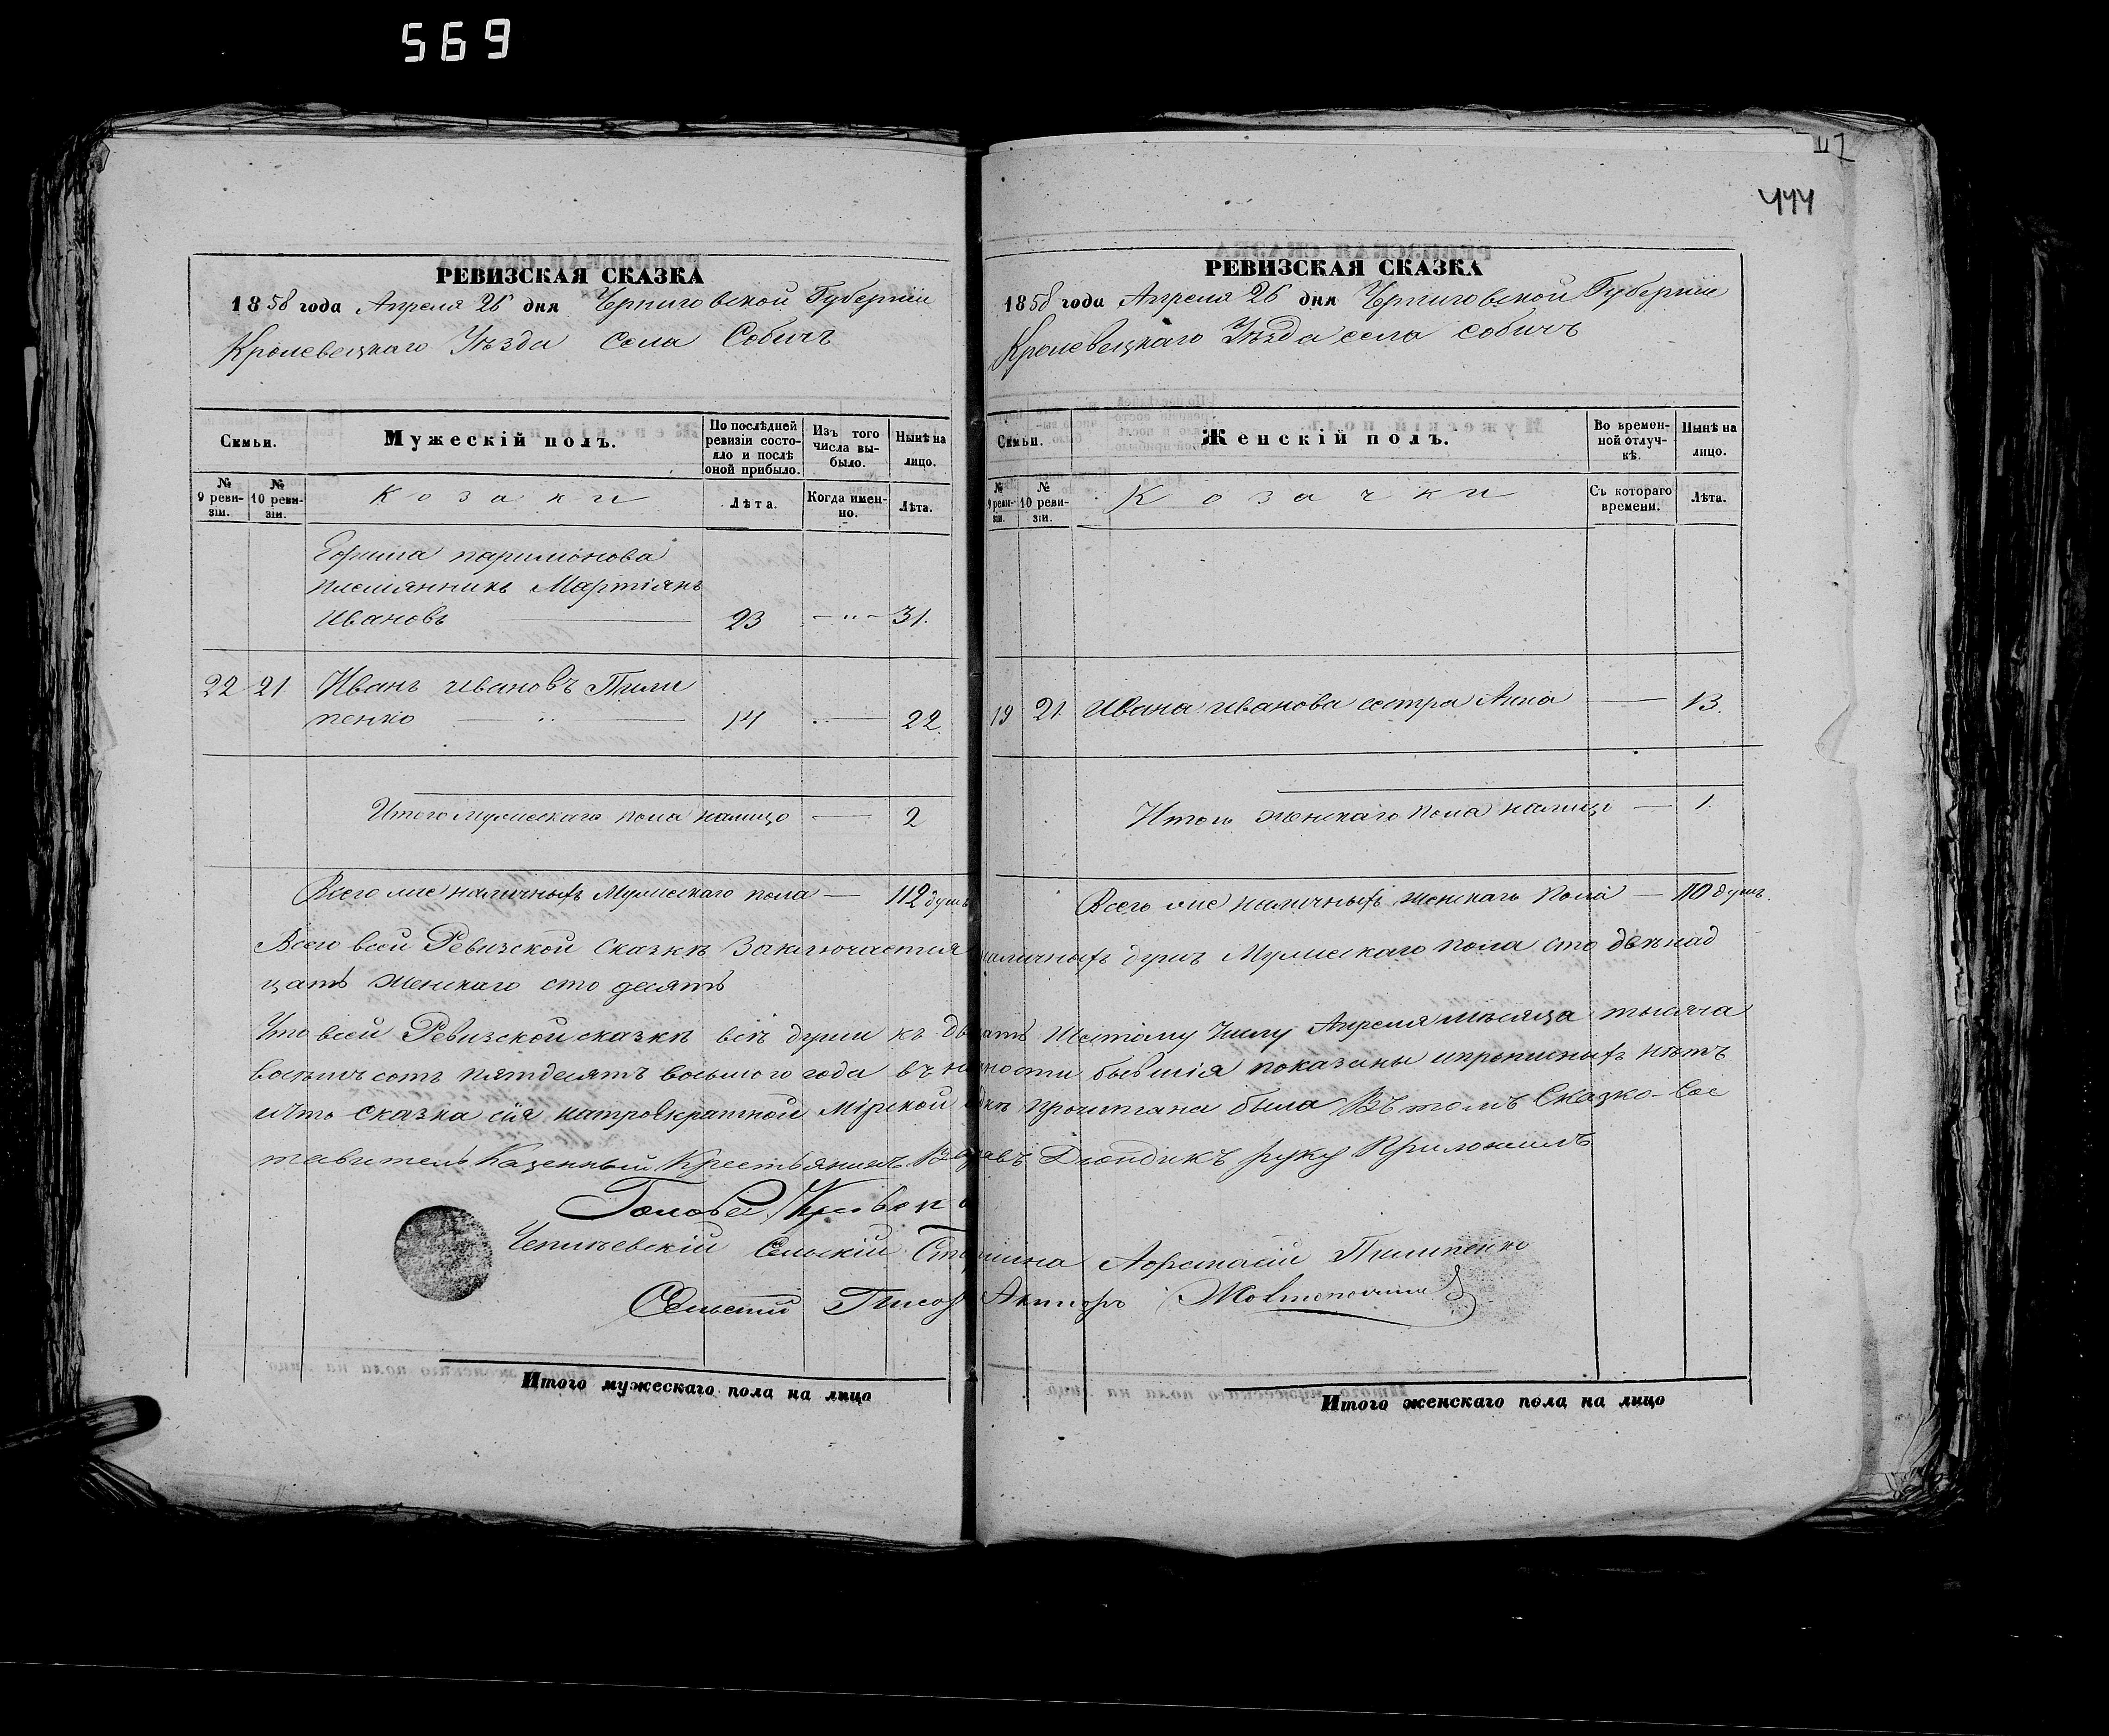 569
117
444
РЕВИЗСКАЯ СКАЗКА
1858 года Апреля 26 дня Черниговской Губерніи
Кролевецкаго Уѣзда Села Собичъ
Семьи.
Мужескій полъ.
По послѣдней ревизіи состояло и послѣ оной прибыло.
Изъ того числа выбыло.
Нынѣ на лицо.
№ 9 ревизіи.
№ 10 ревизіи.
Козаки
Лѣта.
Когда именно.
Лѣта.
Ефима паримонова
племянникъ Мартіянъ
Ивановъ 23 — " — 31.
22 21. Иванъ ивановъ Пили
пенко 14 — 22.
Итого мужескаго пола налицо — 2
Всего же наличныхъ Мужескаго пола — 112 душъ
РЕВИЗСКАЯ СКАЗКА
1858 года Апреля 26 дня Черниговской Губерніи
Кролевецкаго Уѣзда села собичъ
Семьи.
Женскій полъ.
Во временной отлучкѣ.
Нынѣ на лицо.
№ 9 ревизіи.
№ 10 ревизіи.
Козачки
Съ котораго времени.
Лѣта.
19 21. Ивана иванова сестра Анна — 13.
Итого женскаго пола налицо — 1.
Всего же наличныхъ женскаго Пола — 110 душъ.
Всего всей Ревизской Сказкѣ Заключается наличныхъ душъ Мужескаго пола сто двѣнад
цать женскаго сто десять
Что всей Ревизской сказкѣ всѣ души къ двадцать Шестому Числу Апреля мѣсяца тысяча
восемъ сотъ пятдесятъ восьмого года въ наличности бывшія показаны ипрописныхъ нѣтъ
ичто сказка сія натроекратной Мірской сходкѣ прочитана была Въ томъ Сказко-Сос
тавитель Казенный Крестьянинъ Дюндикъ руку Приложилъ
Голова
Сельскій Старшина Афанасій Пилипенко
Сельскій Писарь
Итого мужескаго пола на лицо
Итого женскаго пола на лицо